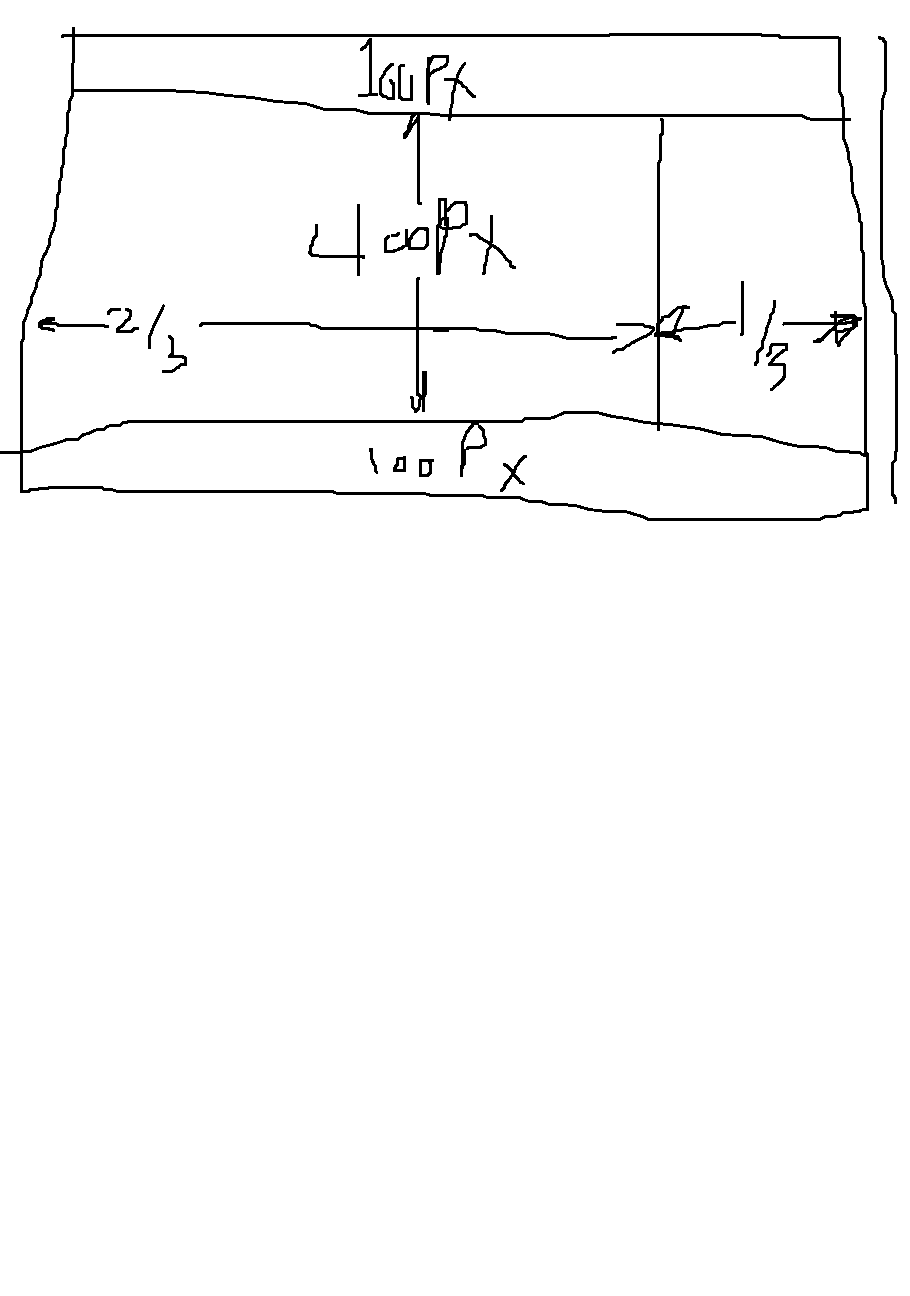 100Px
400Px
2/3
1/3
100Px